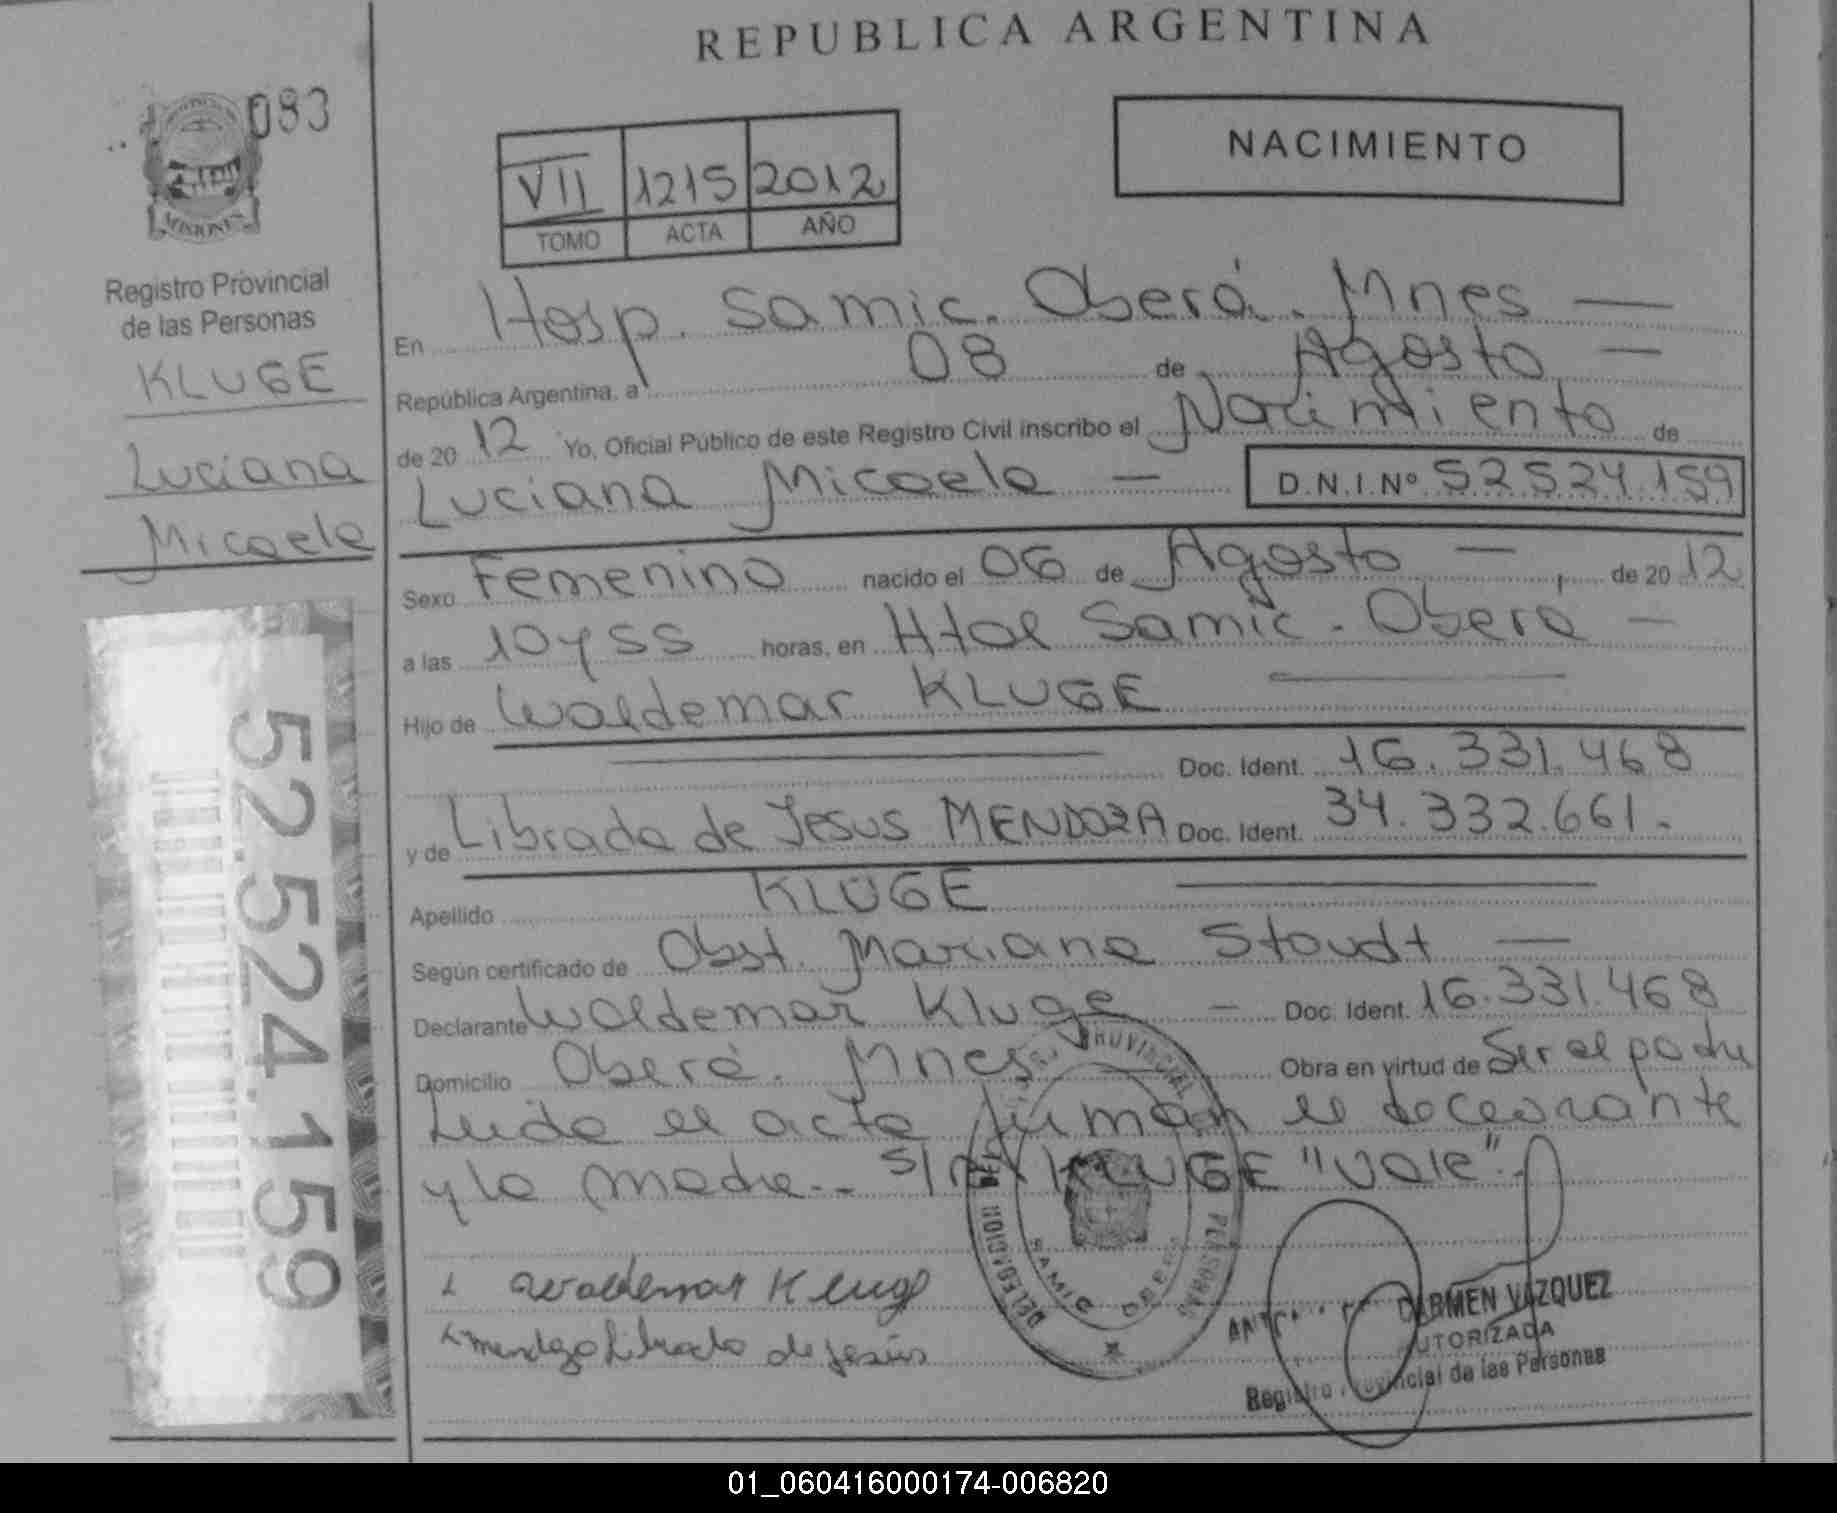 REPUBLICA ARGENTINA
083
MISIONES
Registro Provincial
de las Personas
KLUGE
Luciana
Micaela
52.524.159
VII 1215 2012
TOMO ACTA AÑO
NACIMIENTO
En Hosp. Samic. Oberá. Mnes —
República Argentina, a 08 de Agosto —
de 20 12 Yo, Oficial Público de este Registro Civil inscribo el Nacimiento de
Luciana Micaela — D.N.I.Nº 52524.159
Sexo Femenino nacido el 06 de Agosto — , de 20 12
a las 10 y 55 horas, en Htal Samic. Oberá —
Hijo de Waldemar KLUGE
Doc. Ident. 16.331.468
y de Librada de Jesus MENDOZA Doc. Ident. 34.332.661.
Apellido KLUGE
Según certificado de Obst. Mariana Stoudt —
Declarante Waldemar Kluge — Doc. Ident. 16.331.468
Domicilio Oberá. Mnes — Obra en virtud de Ser el padre
Leida el acta firman el declarante
y la madre.- S/R KLUGE "Vale".
Waldemar Kluge
Mendoza Librada de Jesús
PROVINCIAL
PERSONAS
DELEGACION
SAMIC OBERA
CARMEN VAZQUEZ
AUTORIZADA
Registro Provincial de las Personas
01_060416000174-006820